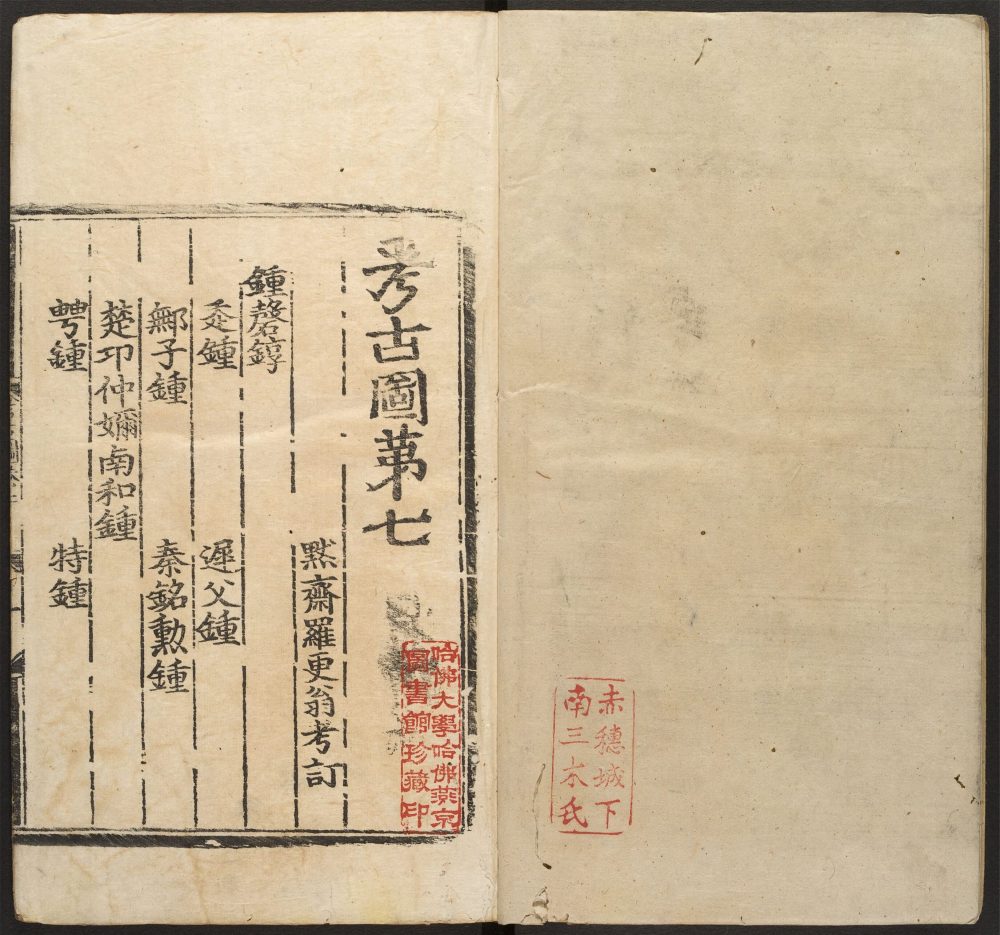 赤穗城下
南三木氏
考古圖苐七
默齋羅更翁考訂
鍾磬錞
㚣鍾 遲父鍾
鄦子鍾 秦銘勲鍾
楚卭仲嬭南和鍾
䚂鍾 特鍾
哈佛大學哈佛燕京
圖書館珍藏印